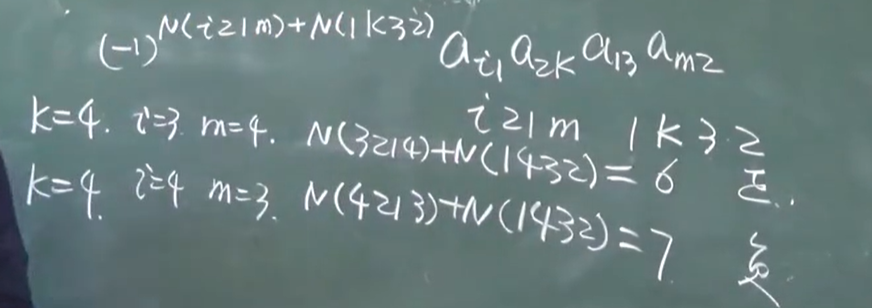 (-1)^{N(i21m)+N(1k32)} a_{i1} a_{2k} a_{13} a_{m2}
i21m 1k32
k=4. i=3. m=4. N(3214)+N(1432)=6 正..
k=4. i=4 m=3. N(4213)+N(1432)=7 负